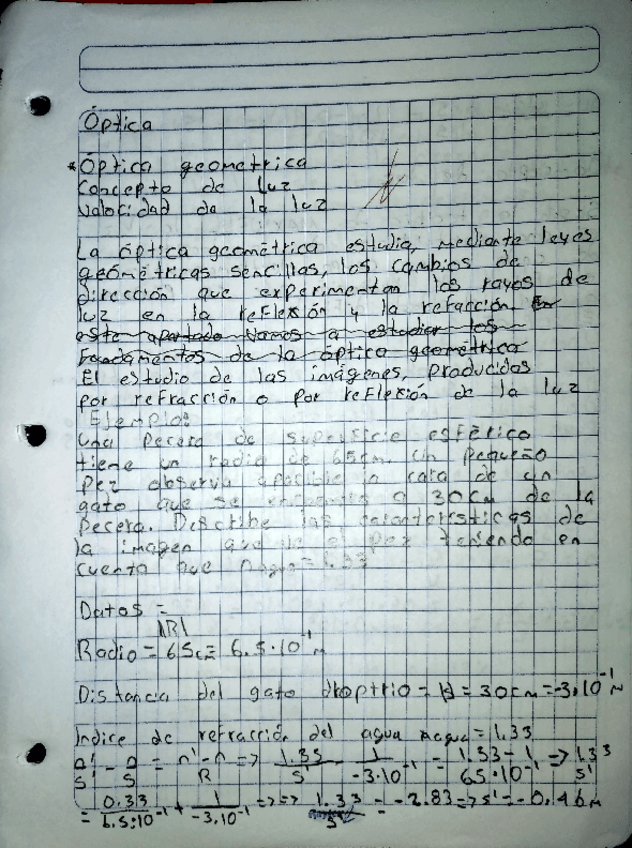 Óptica
* Óptica geometrica
Concepto de luz
Valocidad de la luz
La óptica geométrica estudia, mediante leyes
geométricas sencillas, los cambios de
dirección que experimentan los rayos de
luz en la reflexión y la refracción. En
este apartado vamos a estudiar los
fundamentos de la óptica geométrica
El estudio de las imágenes, producidas
por refracción o por reflexión de la luz
Ejemplo:
Una pecera de superficie esférica
tiene un radio de 65cm. Un pequeño
pez observa la cara de un
gato que se a 30cm de la
pecera. Describe las características de
la imagen que el pez teniendo en
cuenta que nagua = 1.33
Datos =
|R|
Radio = 65cm = 6.5·10⁻¹ m
Distancia del gato droptrio = = 30cm = -3,10⁻¹ m
Indice de refracción del agua nagua = 1.33
n'/s' - n/s = n'-n/R => 1.33/s' - 1/-3·10⁻¹ = 1.33-1/65·10⁻¹ => 1.33/s'
= 0.33/6.5·10⁻¹ + 1/-3,10⁻¹ =>=> 1.33/s' = -2.83 => s' = -0.46m